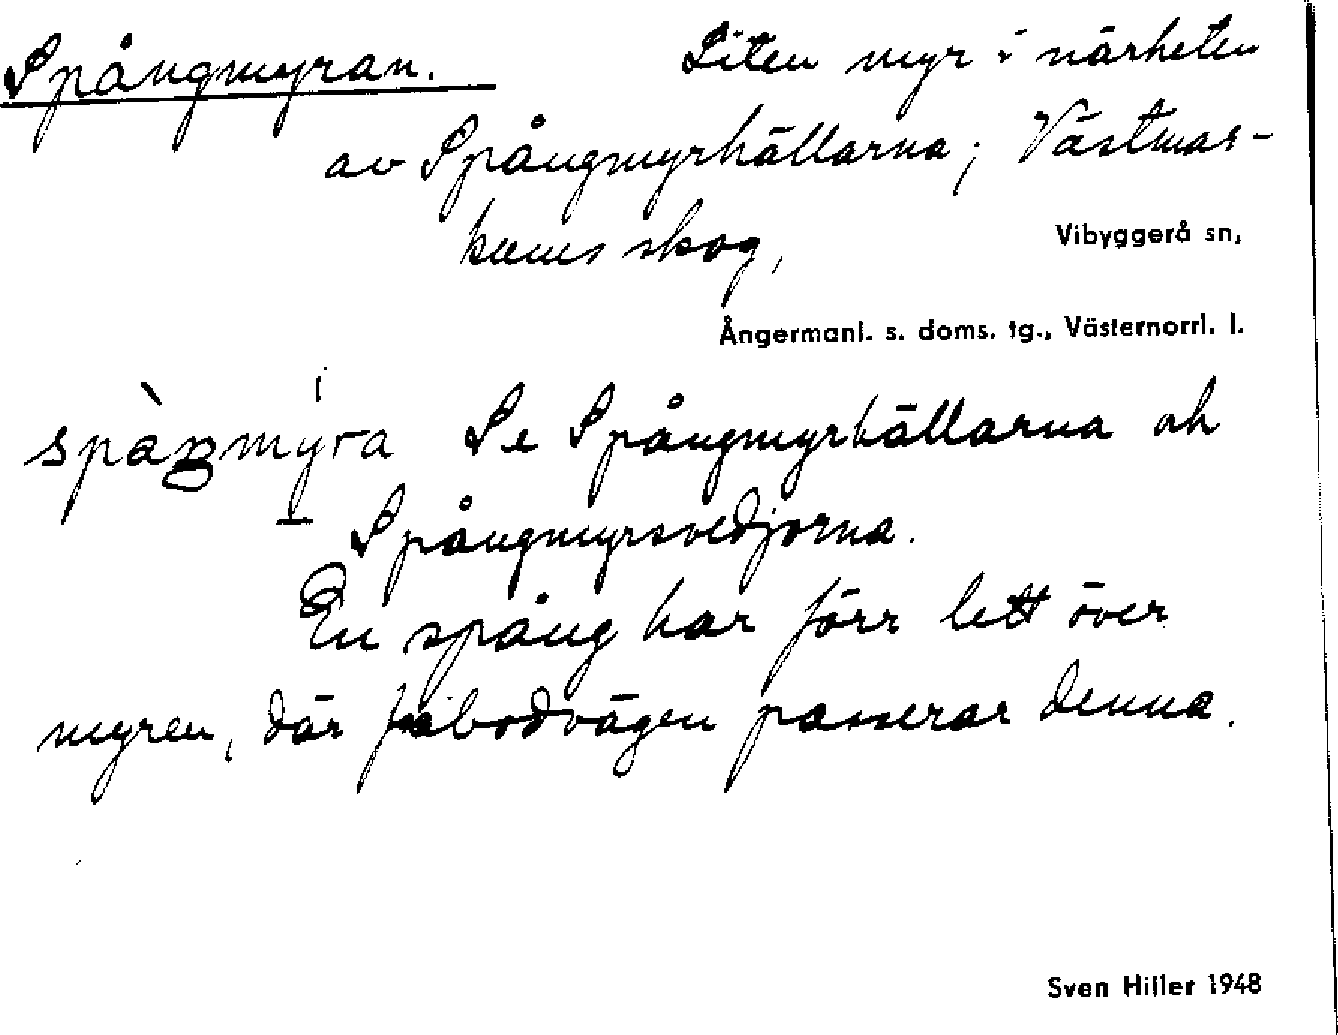 Spångmyran. Liten myr i närheten
av Spångmyrhällarna; Västmar-
kums skog, Vibyggerå sn,
Ångermanl. s. doms. tg., Västernorrl. l.
spàŋmýra Se Spångmyrhällarna och
Spångmyrsvedjorna.
En spång har förr lett över
myren, där fäbodvägen passerar denna.
Sven Hiller 1948